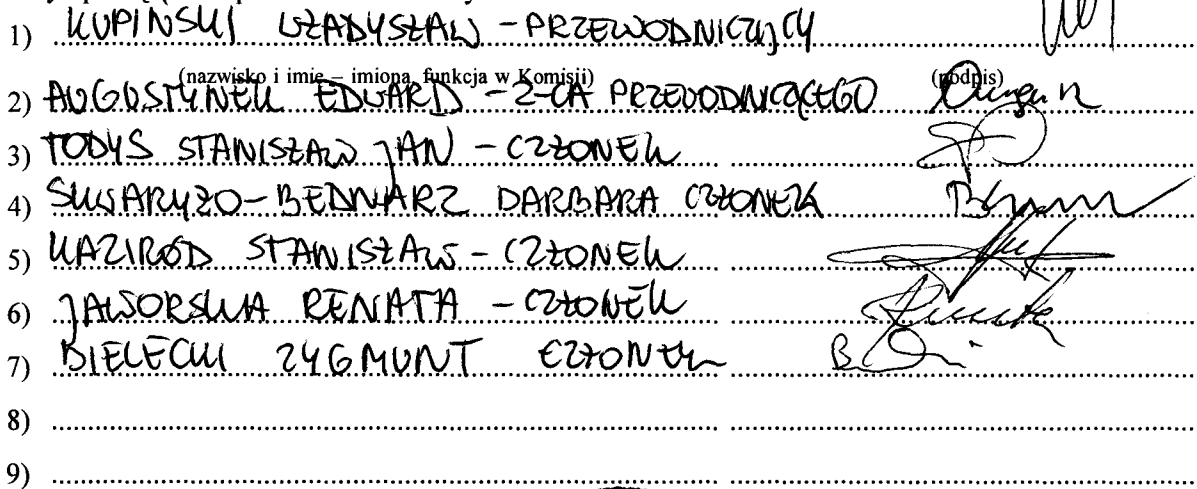 1) KUPIŃSKI WŁADYSŁAW - PRZEWODNICZĄCY
(nazwisko i imię – imiona, funkcja w Komisji) (podpis)
2) AUGUSTYNEK EDWARD - Z-CA PRZEWODNICZĄCEGO
3) TODYS STANISŁAW JAN - CZŁONEK
4) SKWARYŻO-BEDNARZ BARBARA CZŁONEK
5) KAZIRÓD STANISŁAW - CZŁONEK
6) JAWORSKA RENATA - CZŁONEK
7) BIELECKI ZYGMUNT CZŁONEK
8)
9)